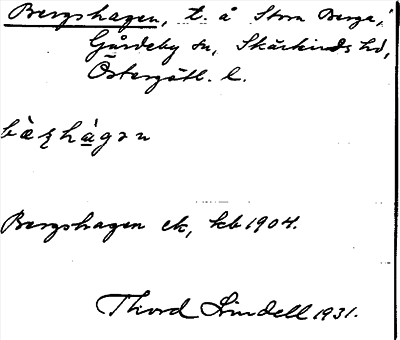 Bergshagen, t. å Stora Berga,
Gårdeby sn, Skärkinds hd,
Östergötl. l.
bæ̀ʂhág̣ən
Bergshagen ek, kb 1904.
Thord Lindell 1931.